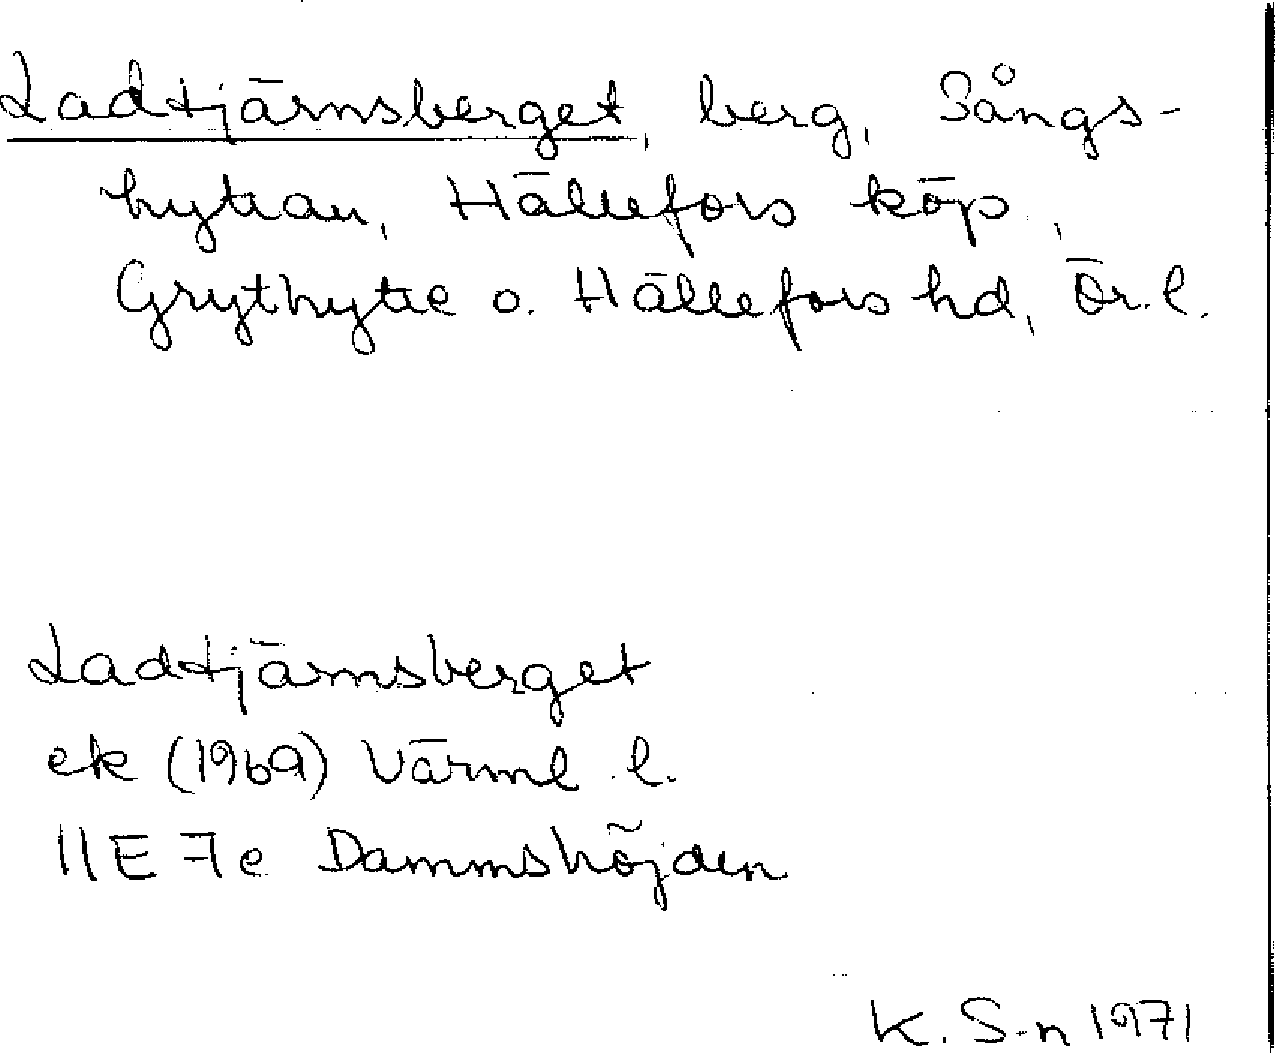 Ladtjärnsberget, berg, Sångs-
hyttan, Hällefors köp.,
Grythytte o. Hällefors hd, Ör. l.
Ladtjärnsberget
ek (1969) Värml. l.
11E 7e Dammshöjden
K. S-n 1971